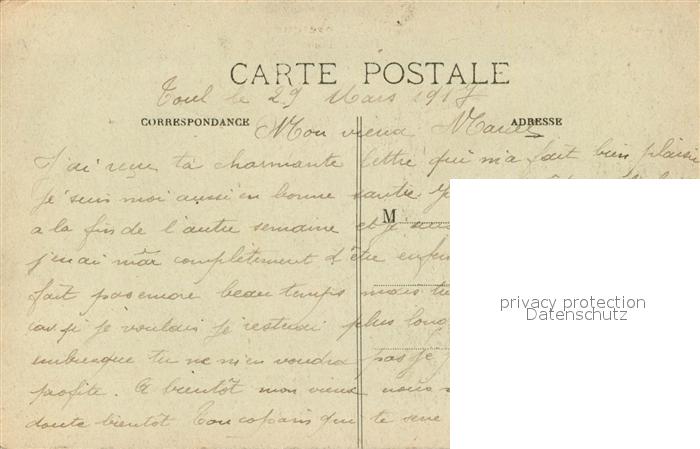 CARTE POSTALE
Toul le 29 Mars 1917
CORRESPONDANCE
ADRESSE
Mon vieux Marcel
J'ai reçu ta charmante lettre qui m'a fait bien plaisir
je suis moi aussi en bonne santée. Je
a la fin de l'autre semaine et je suis
M
j'en ai mar completement d'être enfer
fait pas encore beau temps mais tu
privacy protection
Datenschutz
car si je voulais je resterai plus long
embusque tu ne m'en voudra pas je
profite. A bientôt mon vieux nous
doute bientôt Ton copain qui te serre